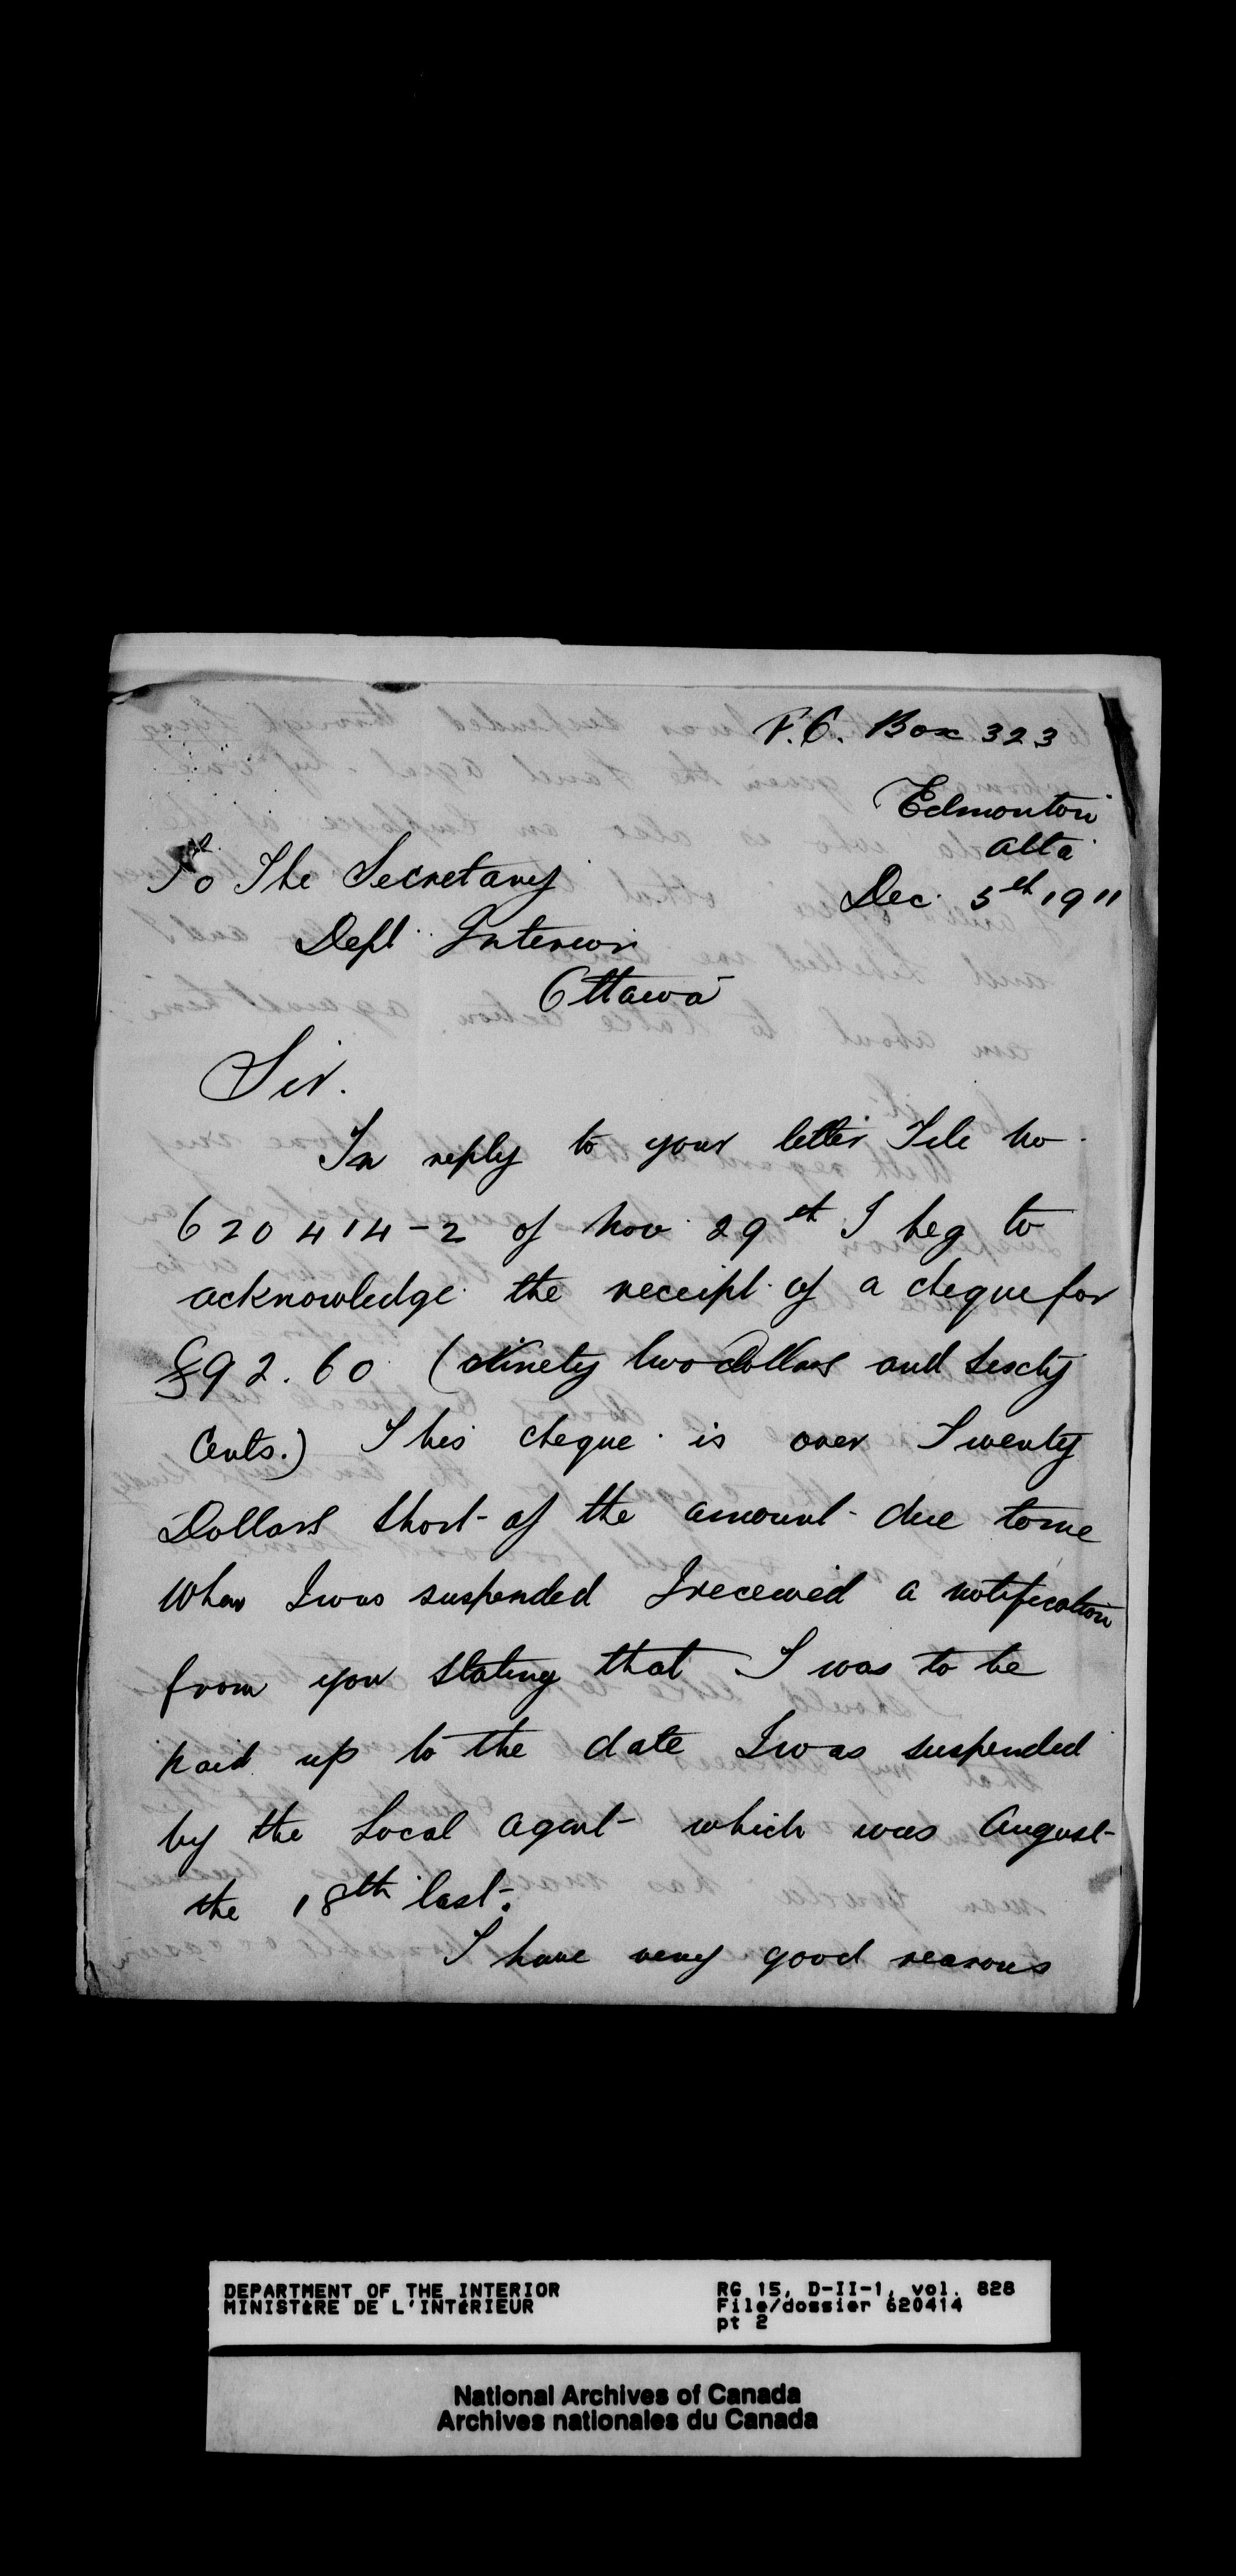 P.O. Box 323
Edmonton
Alta
Dec. 5th 1911
To The Secretary
Dept. Interior
Ottawa
Sir.
In reply to your letter File No.
620414-2 of Nov. 29th I beg to
acknowledge the receipt of a cheque for
$92.60 (Ninety two dollars and sixty
Cents.) This cheque is over Twenty
Dollars short of the amount due to me
When I was suspended I received a notification
from you stating that I was to be
paid up to the date I was suspended
by the Local Agent which was August
the 18th last.
I have very good reasons
DEPARTMENT OF THE INTERIOR
MINISTÈRE DE L'INTÉRIEUR
RG 15, D-II-1, vol. 828
File/dossier 620414
pt 2
National Archives of Canada
Archives nationales du Canada